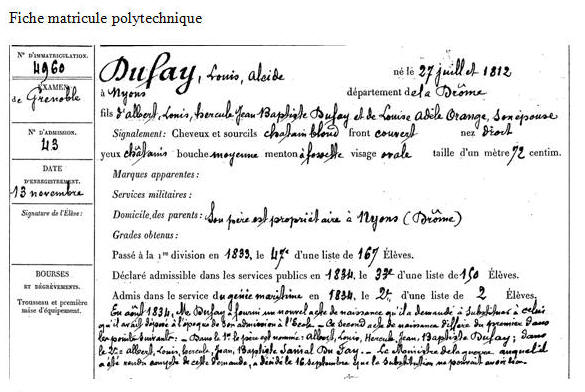 Fiche matricule polytechnique
N° D'IMMATRICULATION.
4960
EXAMEN
de Grenoble
N° D'ADMISSION.
43
DATE
D'ENREGISTREMENT.
13 novembre
Signature de l'Élève :
BOURSES
ET DÉGRÈVEMENTS.
Trousseau et première
mise d'équipement.
Dufay, Louis, Alcide né le 27 juillet 1812
à Nyons département de la Drôme
fils d'Albert, Louis, Hercule Jean Baptiste Dufay et de Louise Adèle Orange, Son épouse
Signalement : Cheveux et sourcils chatain blond front couvert nez droit
yeux châtains bouche moyenne menton à fossette visage ovale taille d'un mètre 72 centim.
Marques apparentes :
Services militaires :
Domicile des parents : Son père est propriétaire à Nyons (Drôme)
Grades obtenus :
Passé à la 1re division en 1833, le 47e d'une liste de 167 Élèves.
Déclaré admissible dans les services publics en 1834, le 33e d'une liste de 150 Élèves.
Admis dans le service du génie maritime en 1834, le 2e d'une liste de 2 Élèves.
En août 1834, Mr Dufay a fourni un nouvel acte de naissance qu'il a demandé à substituer à celui
qu'il avait déposé à l'époque de son admission à l'École. - Ce second acte de naissance diffère du premier dans
les points suivants : - Dans le 1er le père est nommé : Albert, Louis, Hercule, Jean, Baptiste Dufay ; dans
le 2e : Albert, Louis, hercule, Jean, Baptiste Du Fay. - Le Ministre de la guerre auquel il
a été rendu compte de cette demande, a décidé le 16 septembre que la substitution ne pouvait avoir lieu.